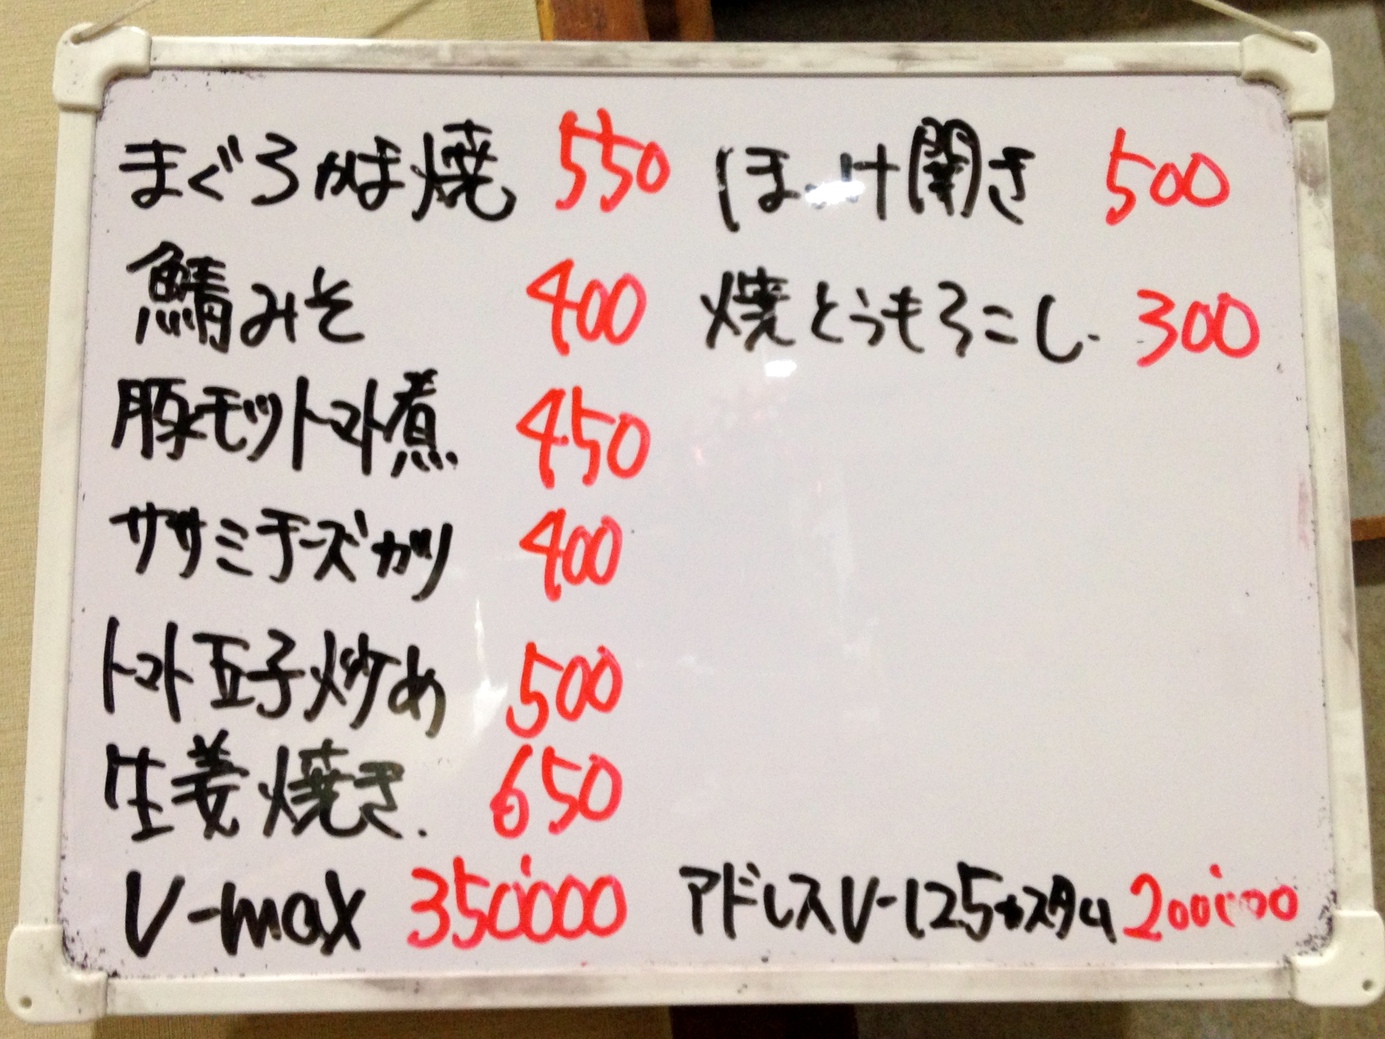 まぐろかま焼 550
鯖みそ 400
豚モツトマト煮 450
ササミチーズカツ 400
トマト玉子炒め 500
生姜焼き. 650
V-max 350'000
ほっけ開き 500
焼とうもろこし 300
アドレスV-125カスタム 200'000